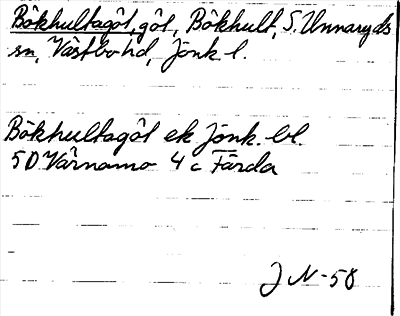 Bökhultagöl, göl, Bökhult, S. Unnaryds
sn, Västbo hd, Jönk. l.
Bökhultagöl ek Jönk. bl.
5D Värnamo 4 c Färda
J N-58